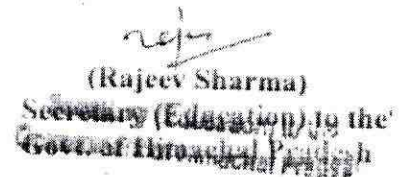 (Rajeev Sharma)
Secretary (Education) to the
Govt. of Himachal Pradesh